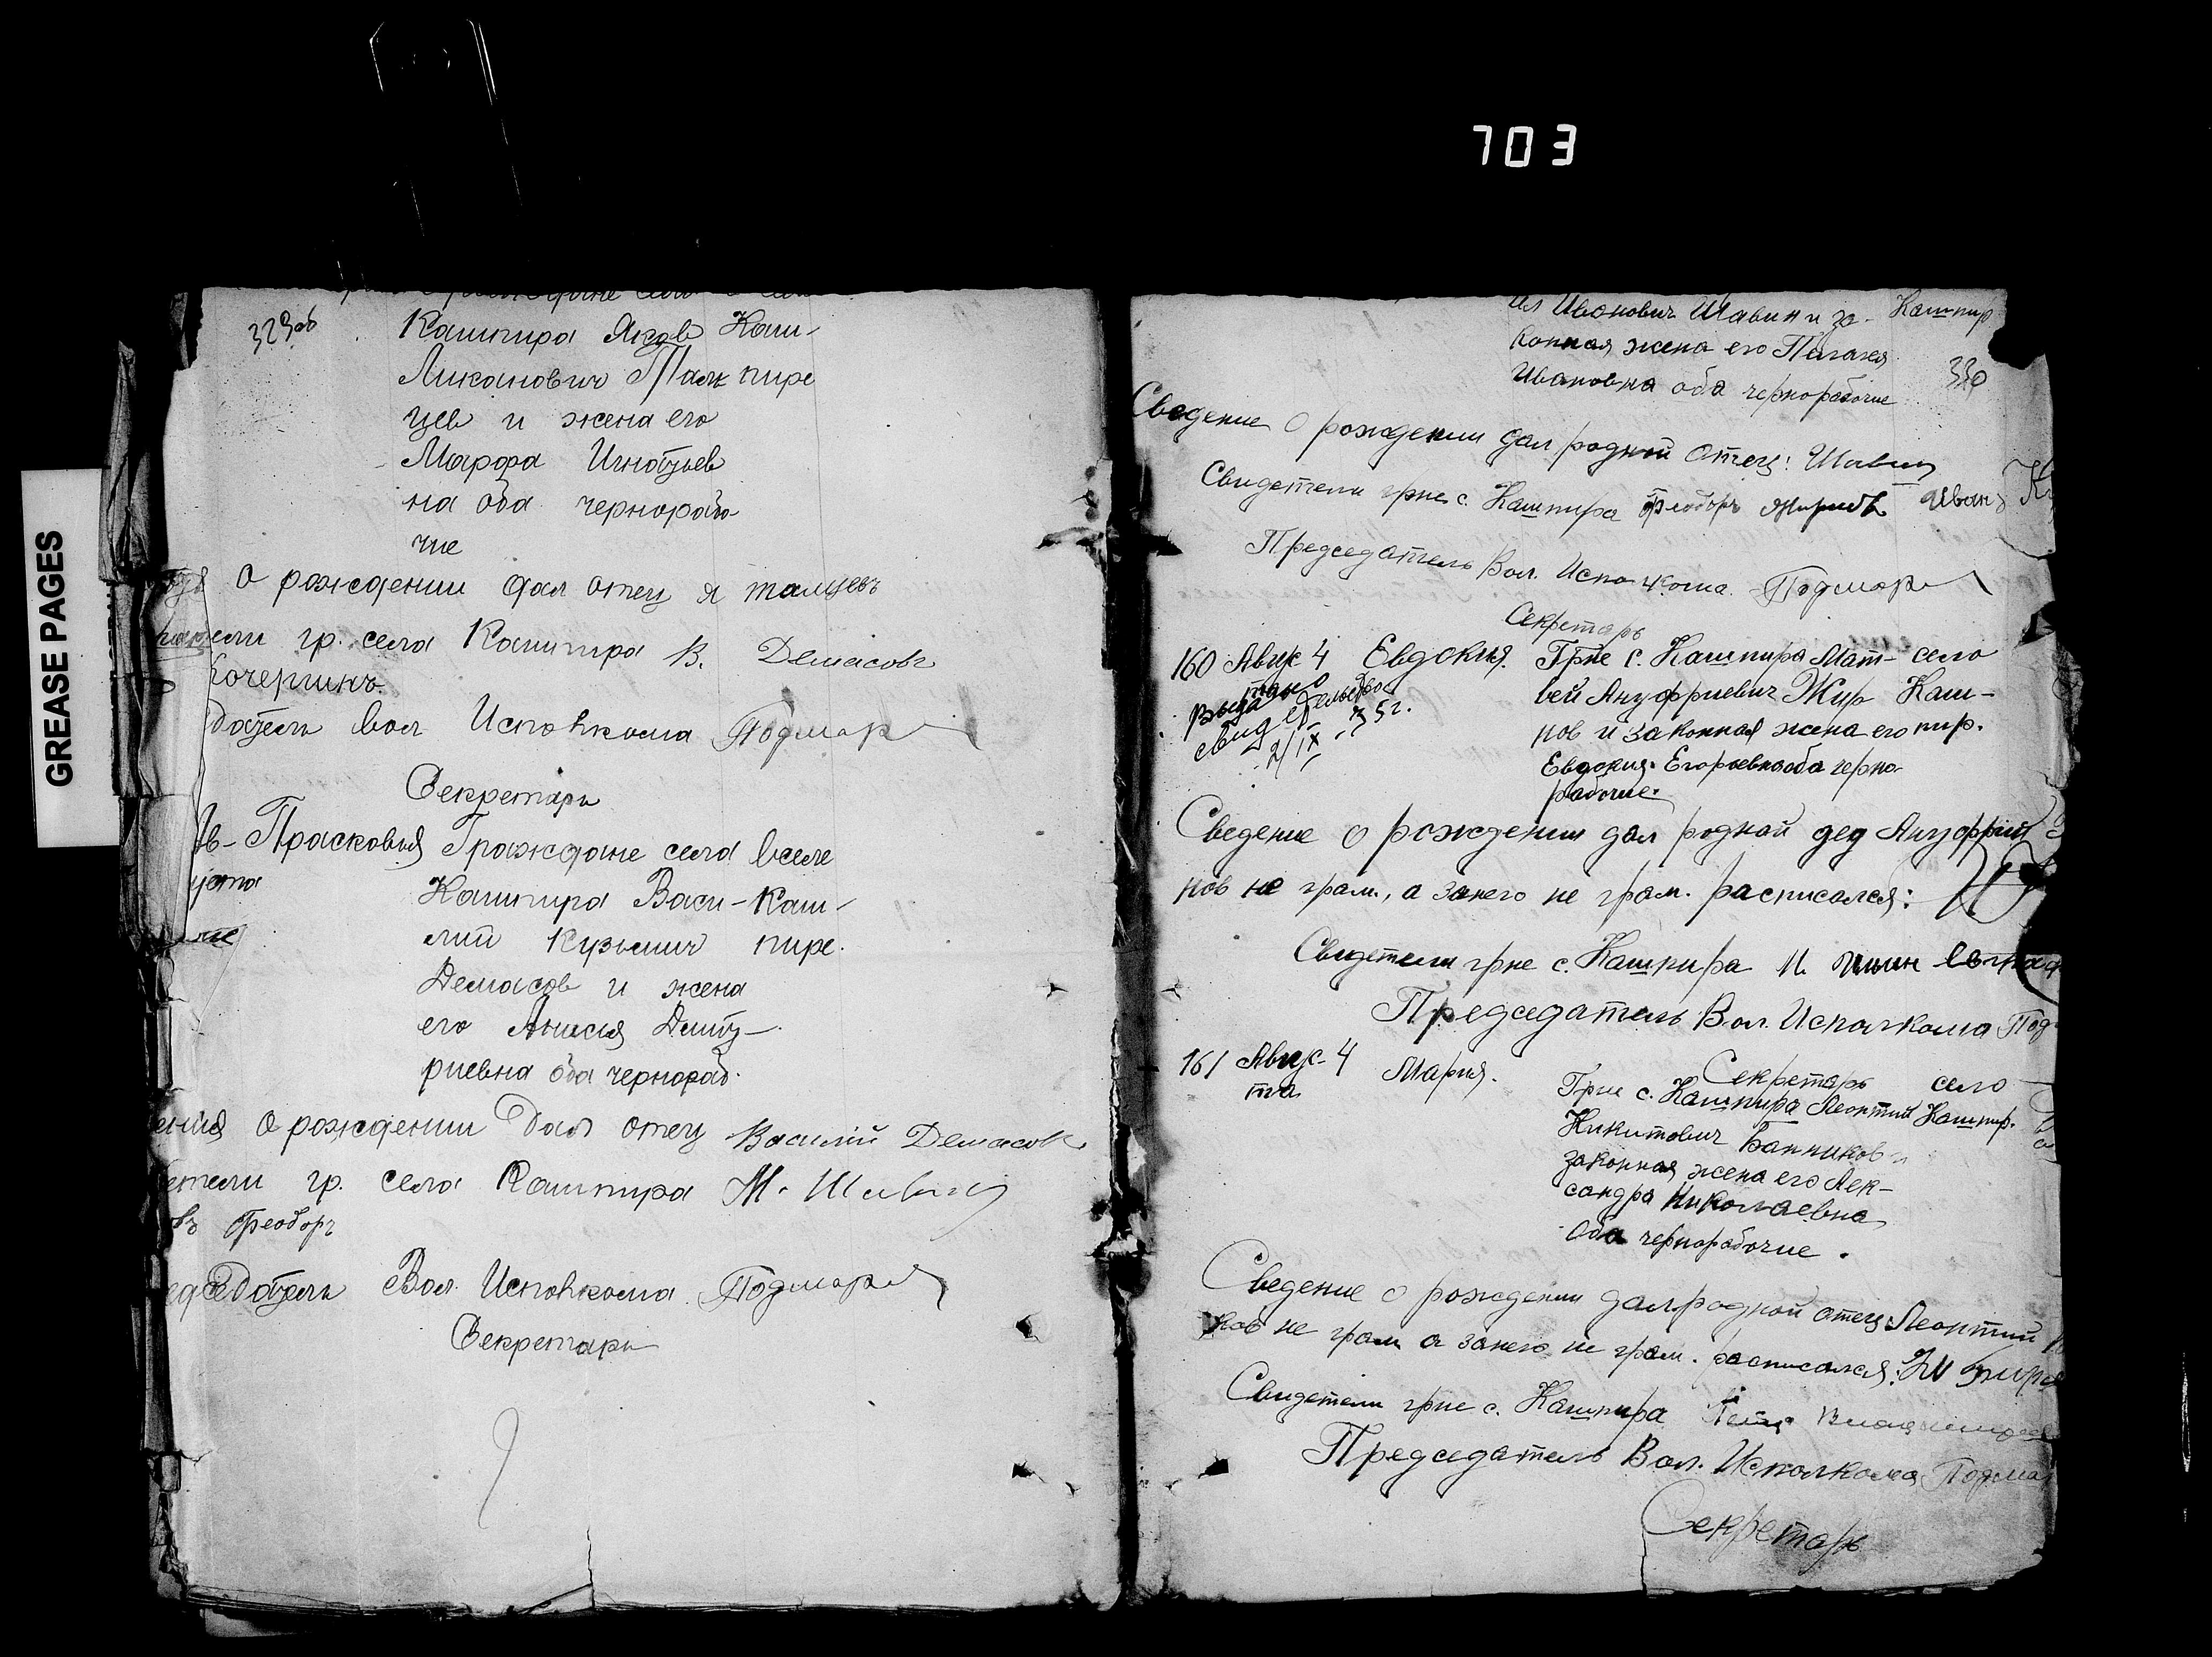 703
GREASE PAGES
329об
Кашпира Яков Каш-
Ликанович Талк пире
цев и жена его
Марфа Игнатьев
на оба чернорабо-
чие
о рождении дал отец я талцевъ
гр. села Кашпира В. Демасовъ
Кочергинъ
датель Вол Исполкома Подмар
Секретарь
Ав- Прасковья Граждане села в селе
густа Кашпира Васи- Каш-
лий Кузьмич пире.
Демасов и жена
его Анисия Дмит-
риевна оба чернораб.
ения о рождении дал отец Василий Демасов
етели гр. села Кашпира М. Шавин
въ Феодоръ
едседатель Вол. Исполкома Подмар
Секретарь
ил Иванович Шавин и за- Кашпир
конная жена его Пелагея
Ивановна оба чернорабочие 330
Сведение о рождении дал родной отец: Шавин
Свидетели грне с. Кашпира Феодоръ Иван
Председатель Вол. Исполкома. Подмар
Секретарь
160 Авгус 4 Евдокия. Грне с. Кашпира Мат- село
та вей Ануфриевич Жир Каш-
Выдано свидетельство нов и законная жена его пир.
2/IX-35г. Евдокия Егорьевна оба черно-
рабочие.
Сведение о рождении дал родной дед Ануфрий
нов не грам., а за него не грам. расписался:
Свидетели грне с. Кашпира И.
Председатель Вол. Исполкома Под
Секретарь
161 Авгус- 4 Мария. Грне с. Кашпира Леонтий село
та Никитович Банников и Кашпир.
законная жена его Лек-
сандра Николаевна
Оба чернорабочие.
Сведение о рождении дал родной отец: Леонтий
ков не грам а за него не грам. расписался:
Свидетели грне с. Кашпира
Председатель Вол. Исполкома Подмар
Секретарь